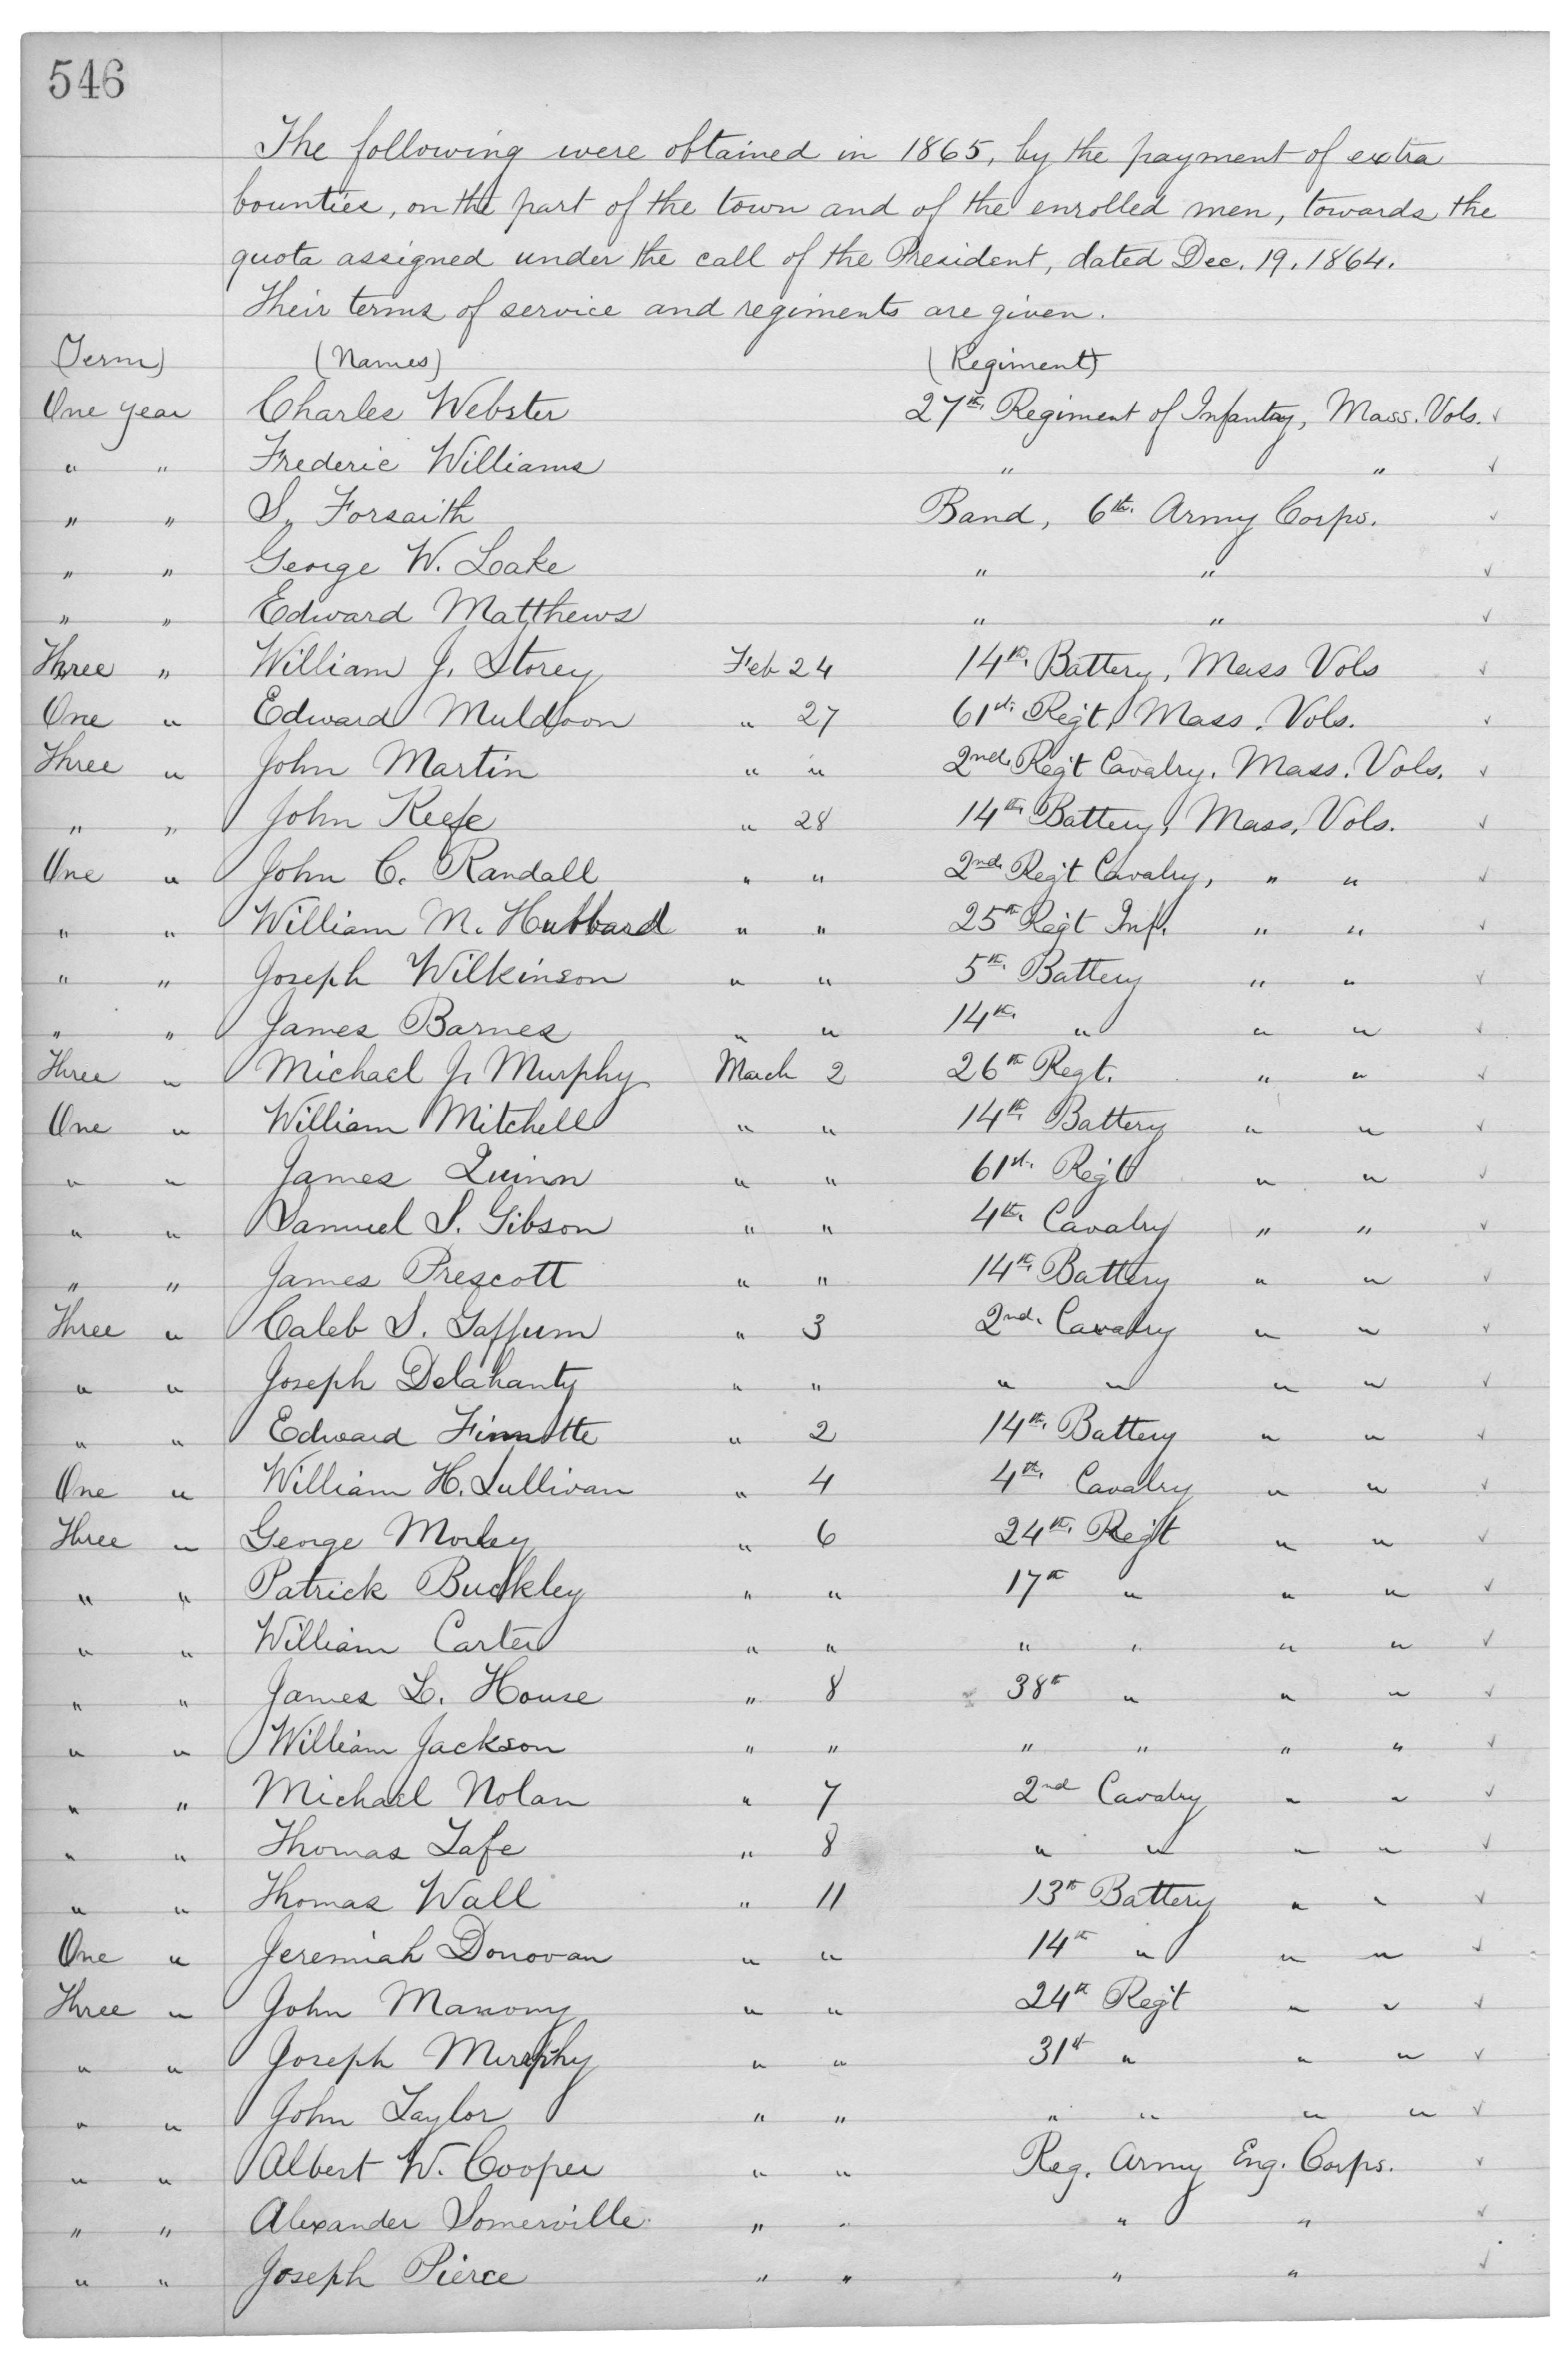 546
The following were obtained in 1865, by the payment of extra
bounties, on the part of the town and of the enrolled men, towards the
quota assigned under the call of the President, dated Dec. 19. 1864.
Their terms of service and regiments are given.
(Term) (Names) (Regiment)
One year Charles Webster 27th. Regiment of Infantry, Mass. Vols. ✓
" " Frederic Williams " " ✓
" " S. Forsaith Band, 6th. Army Corps. ✓
" " George W. Lake " " ✓
" " Edward Matthews " " ✓
Three " William J. Storey Feb 24 14th. Battery, Mass Vols ✓
One " Edward Muldoon " 27 61st. Reg't, Mass. Vols. ✓
Three " John Martin " " 2nd. Reg't Cavalry, Mass. Vols. ✓
" " John Keefe " 28 14th. Battery, Mass, Vols. ✓
One " John C. Randall " " 2nd. Reg't Cavalry, " " ✓
" " William M. Hubbard " " 25th Reg't Inf. " " ✓
" " Joseph Wilkinson " " 5th. Battery " " ✓
" " James Barnes " " 14th. " " " ✓
Three " Michael J. Murphy March 2 26th Regt. " " ✓
One " William Mitchell " " 14th. Battery " " ✓
" " James Quinn " " 61st. Reg't " " ✓
" " Samuel S. Gibson " " 4th. Cavalry " " ✓
" " James Prescott " " 14th. Battery " " ✓
Three " Caleb S. " 3 2nd. Cavalry " " ✓
" " Joseph Delahanty " " " " " " ✓
" " Edward " 2 14th. Battery " " ✓
One " William H. Sullivan " 4 4th. Cavalry " " ✓
Three " George Morley " 6 24th. Reg't " " ✓
" " Patrick Buckley " " 17th " " " ✓
" " William Carter " " " " " " ✓
" " James L. House " 8 38th " " " ✓
" " William Jackson " " " " " " ✓
" " Michael Nolan " 7 2nd Cavalry " " ✓
" " Thomas Tafe " 8 " " " " ✓
" " Thomas Wall " 11 13th Battery " " ✓
One " Jeremiah Donovan " " 14th " " " ✓
Three " John " " 24th Reg't " " ✓
" " Joseph Murphy " " 31st " " " ✓
" " John Taylor " " " " " " ✓
" " Albert W. Cooper " " Reg. Army Eng. Corps. ✓
" " Alexander Somerville " " " " ✓
" " Joseph Pierce " " " " ✓